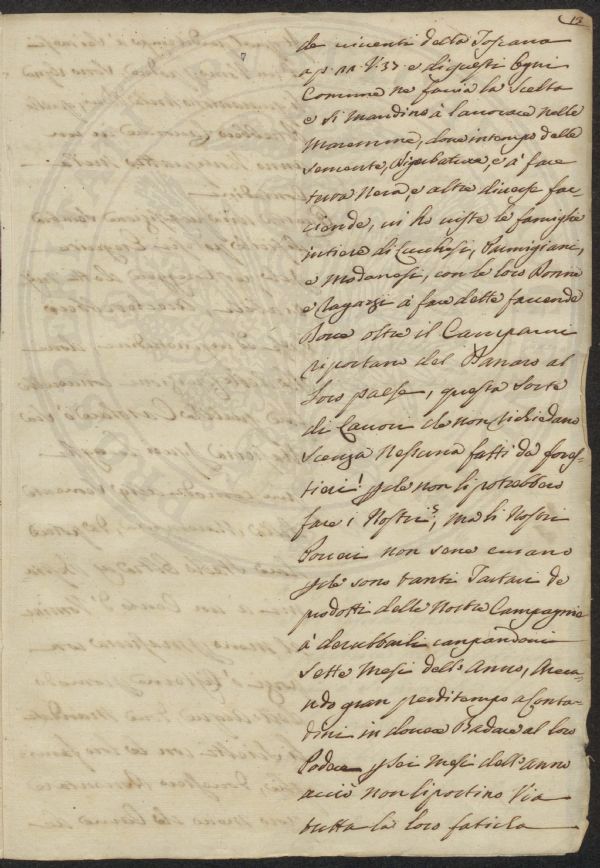 13
de viventi della Toscana
ap: 11 V: 37 e di questi Ogni
Comune ne facia la Scelta
e Si Mandino à Lavorare nelle
Maremme, dove in tempo delle
Semente, e à fare
terra Nera, e altre diverse fac
ciende, vi ho viste le famiglie
intiere di Lucchesi, Parmigiani,
e Modanesi, con le loro Donne
e Ragazzi à fare dette facende
Dove oltre il Camparvi
riportano del Danaro al
loro paese, questa Sorte
di Lavori che non Richiedano
Scenza Nessuna fatti da fores
tieri! pche non li potrebbero
fare i Nostri?, ma li Nostri
Poveri non sene curano
pche sono tanti Tartari de
prodotti delle Nostre Campagnie
à derubbarli campandovi
Sette Mesi dell'Anno, Arecan
do gran perditempo a Conta
dini in dover Badare al loro
Podere p sei Mesi dell'anno
acciò non li portino Via
tutta la loro faticha